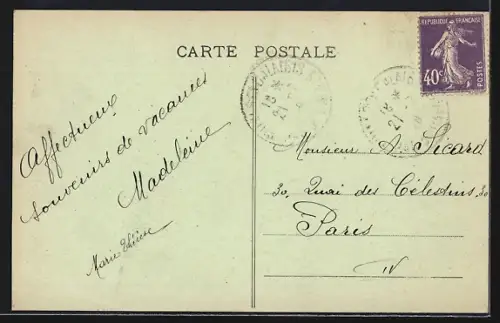 CARTE POSTALE
RÉPUBLIQUE FRANÇAISE
40c
POSTES
Affectueux
souvenirs de vacances
Madeleine
Marie Thérèse
Monsieur A. Sicard
30, Quai des Célestins, 30
Paris
IV